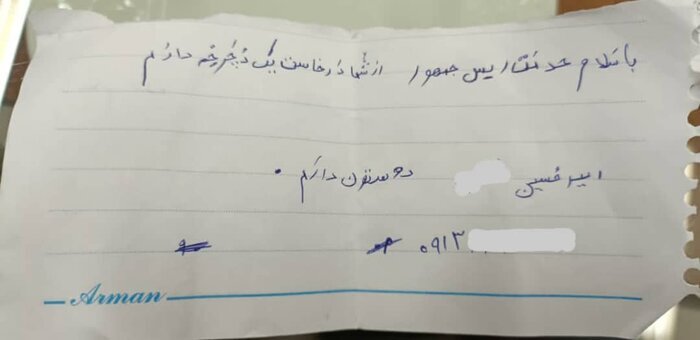 با سلام خدمت رییس جمهور از شما درخاست یک دوچرخه دارم
امیر حسین دوستون دارم .
۰۹۱۳
Arman